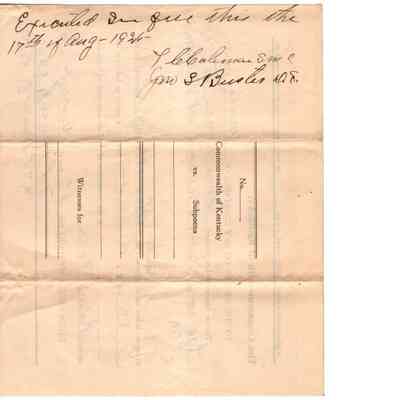 Executed In full this the
17th of Aug - 1925 -
T C Coleman S M C
By S Busler D.S.
No.
Commonwealth of Kentucky
vs. Subpoena
Witnesses for